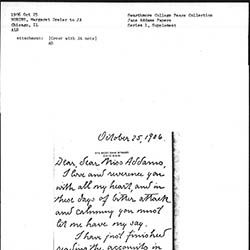 1906 Oct 25
ROBINS, Margaret Dreier to JA
Chicago, IL
ALS
attachment: [Cover with JA note]
AD
Swarthmore College Peace Collection
Jane Addams Papers
Series 1, Supplement
October 25, 1906.
Dear, dear Miss Addams,
I love and reverence you
with all my heart, and in
these days of bitter attack
and calumny you must
let me have my say.
I have just finished
reading the accounts in